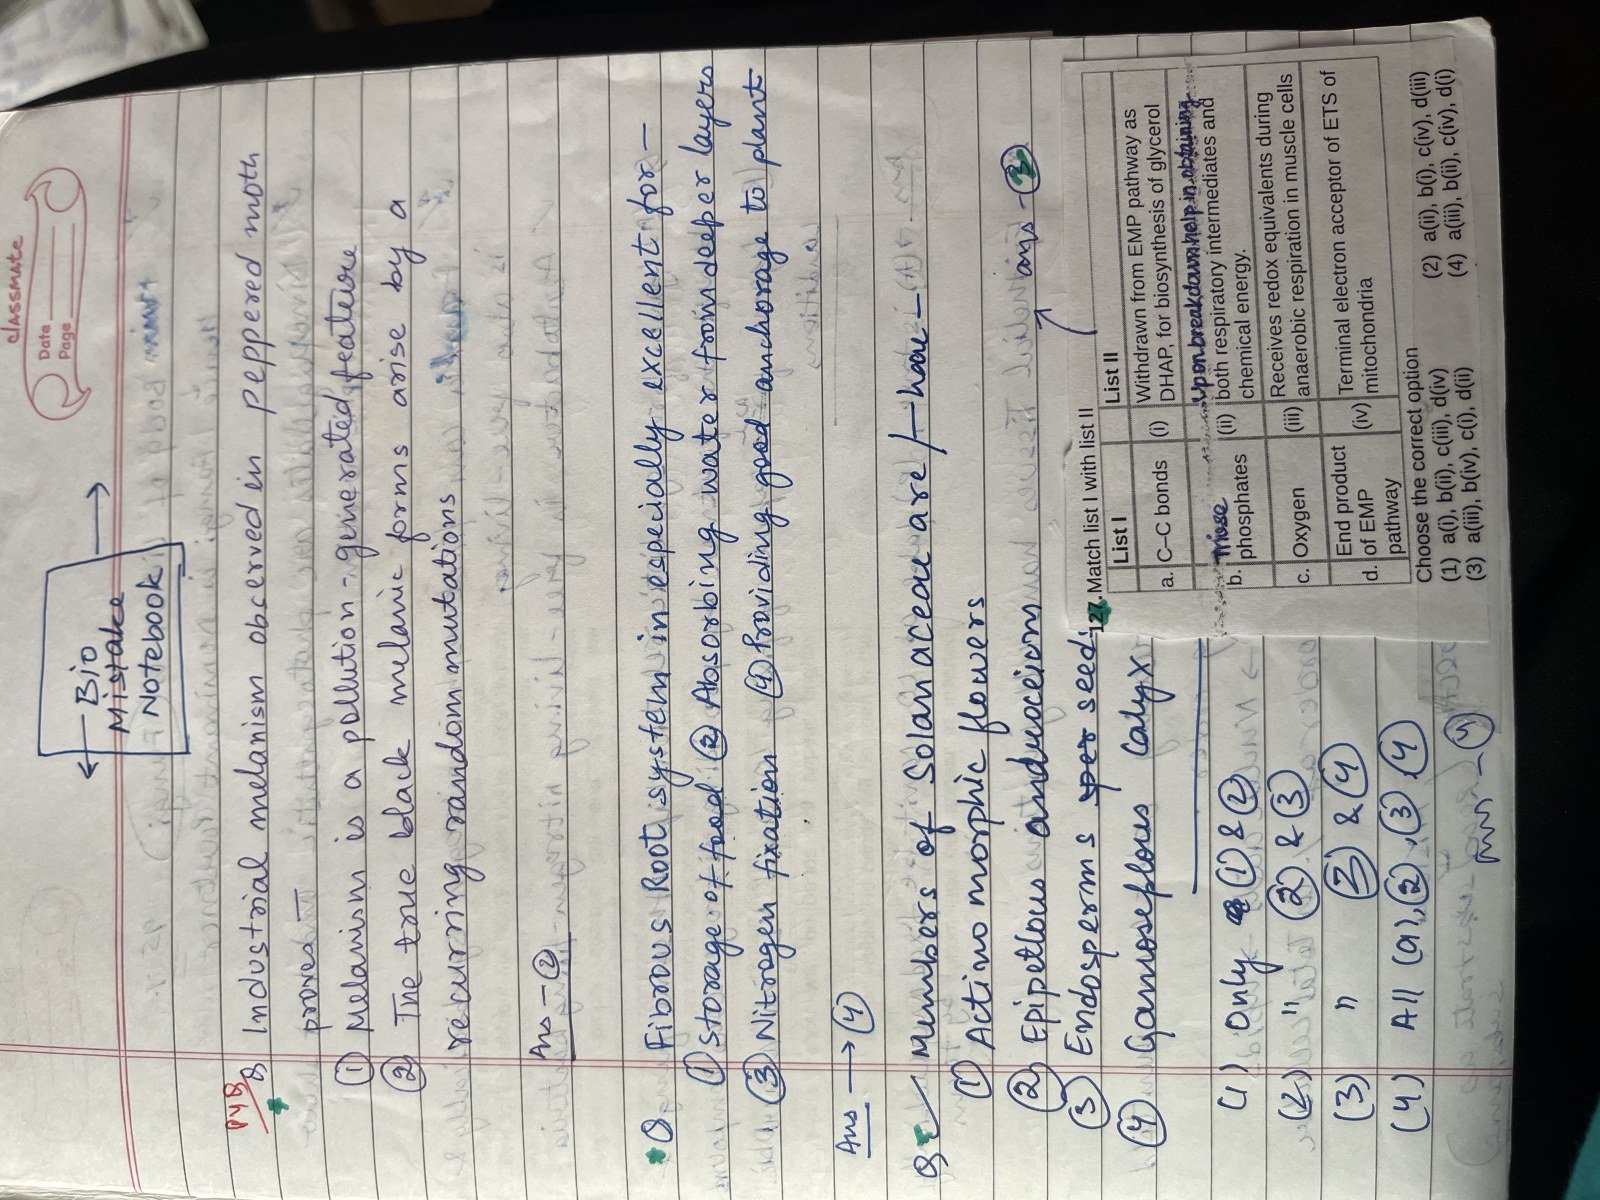 classmate
Date
Page
Bio
Mistake
Notebook
PYQ
Q Industrial melanism observed in peppered moth
proves —
① Melanism is a pollution-generated feature
② The true black melanic forms arise by a
recurring random mutations
Ans - ②
* Q Fibrous Root system in especially excellent for —
① Storage of food ② Absorbing water from deeper layers
③ Nitrogen fixation ④ Providing good anchorage to plant
Ans → ④
Q Members of Solanaceae are / have —
① Actinomorphic flowers
② Epipetlous anduoceium
③ Endosperms seed
④ Gamoseplous Calyx
(1) Only ① & ②
(2) " ② & ③
(3) " ③ & ④
(4) All (a), ②, ③, ④
Ans - ④
ans - ③
127. Match list I with list II
List I List II
a. C–C bonds (i) Withdrawn from EMP pathway as
DHAP, for biosynthesis of glycerol
b. Triose phosphates (ii) Upon breakdown help in obtaining
both respiratory intermediates and
chemical energy.
c. Oxygen (iii) Receives redox equivalents during
anaerobic respiration in muscle cells
d. End product of EMP pathway (iv) Terminal electron acceptor of ETS of
mitochondria
Choose the correct option
(1) a(i), b(ii), c(iii), d(iv) (2) a(ii), b(i), c(iv), d(iii)
(3) a(iii), b(iv), c(i), d(ii) (4) a(iii), b(ii), c(iv), d(i)